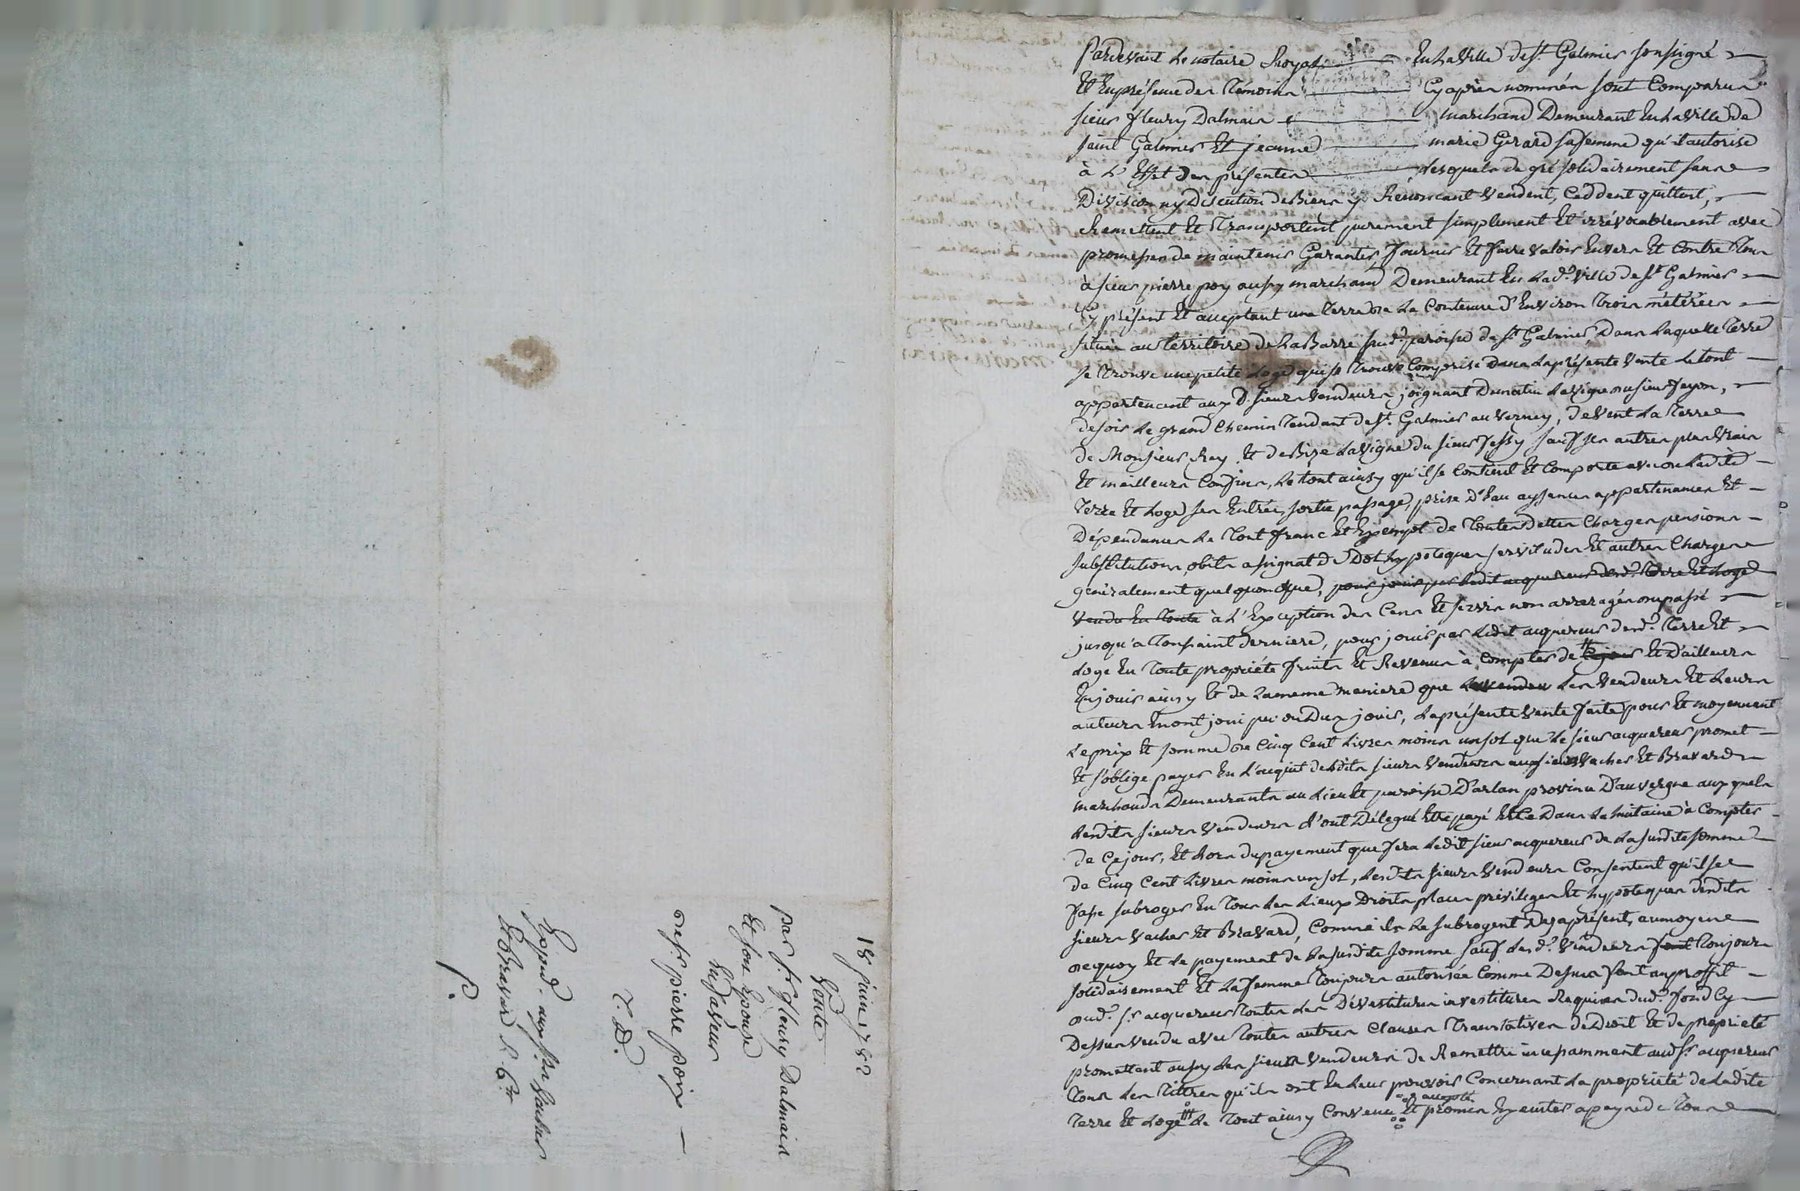 18 juin 178?
Vente
par s.r fleury Dalmais
Et son Epouse
En faveur
De s.r pierre poÿ
T. D.
Exped. aux s.rs Vacher
Et Bravard
P.
Pardevant Le notaire Royal En La Ville de S.t Galmier soussigné
Et En présence des Témoins Cy après nommés sont Comparus
sieur fleury Dalmais marchand Demeurant En La Ville de
saint Galmier Et jeanne marie Gerard sa femme qu'il autorise
à L'Effet des présentes Lesquels de gré solidairement sans
Division ny Discution de Biens y Renoncant Vendent, Ceddent quittent,
Remettent Et Transportent purement simplement Et irrévocablement avec
promesses de maintenir Garantir fournir Et faire valoir Envers Et Contre Tous
à sieur pierre poy aussy marchand Demeurant En Lad.e Ville de S.t Galmier
Cy présent Et acceptant une Terre de La Contenue D'Environ Trois métérées
située au Territoire de La Barre susd. paroisse de S.t Galmier, Dans Laquelle Terre
se Trouve une petite Loge qui se Trouve Comprise Dans La présente Vente Le tout
appartenant aux d. sieurs Vendeurs joignant Du matin La vigne du sieur
de soir Le grand Chemin Tendant de S.t Galmier au Verney, de Vent La Terre
de Monsieur Rey Et de Bize La vigne du sieur sauf ses autres plus Vrais
Et meilleurs Confins, Le tout ainsy qu'il se Contient Et Comporte avec Ladite
Terre Et Loge ses Entrées, sortie passage, prise D'Eau ayssences appartenances Et
Dépendances Le Tout franc Et Exempt de Toutes dettes Charges pensions
substitutions obits assignat de Dot hypoteques servitudes Et autres Charges
généralement quelquonque, pour jouir par Ledit acquereur desd. Terre Et Loge
Vendu En Toute à L'Exception des Cens Et servis non arreragés ou passé
jusqu'à Toussaint derniere, pour jouir par Ledit acquereur desd. Terre Et
Loge En Toute propriété fruits Et Revenus à Compter de Ce jour Et D'ailleurs
En jouir ainsy Et de La meme maniere que Les Vendeurs Et Leurs
auteurs En ont joui pu ou Du jouir, La présente Vente faite pour Et moyennant
Le prix Et somme de Cinq Cent Livres moins un sol que Le sieur acquereur promet
Et s'oblige payer En L'acquit desdits sieurs Vendeurs aux sieurs Vacher Et Bravard
marchands Demeurants au Lieu Et paroisse D'arlan province D'auvergne auxquels
Lesdits sieurs Vendeurs L'ont Délegué Dans La huitaine à Compter
de Ce jour, Et Lors du payement que fera Ledit sieur acquereur de La susdite somme
de Cinq Cent Livres moins un sol, Lesdits sieurs Vendeurs Consentent qu'il se
fasse subroger En Tous Les Lieux Droits place privileges Et hypoteques desdits
sieurs Vacher Et Bravard, Comme ils Le subrogent Des àprésent, au moyen
de quoy Et Le payement de La susdite somme sauf Lesd. Vendeurs font Toujours
solidairement Et La femme Toujours autorisée Comme Dessus font au proffit
oud. s.r acquereur Toutes Les Dévestitures investitures Requises dud. fond Cy
Dessus Vendu avec Toutes autres Clauses Translatives de Droit Et de propriété
promettant aussy Les sieurs Vendeurs de Remettre incessamment aud. s.r acquereur
Tous Les Tittres qu'ils ont En Leur pouvoir Concernant La propriété de Ladite
Terre Et Loge Le Tout ainsy Convenu Et accepté promis Executer a peyne de Tous